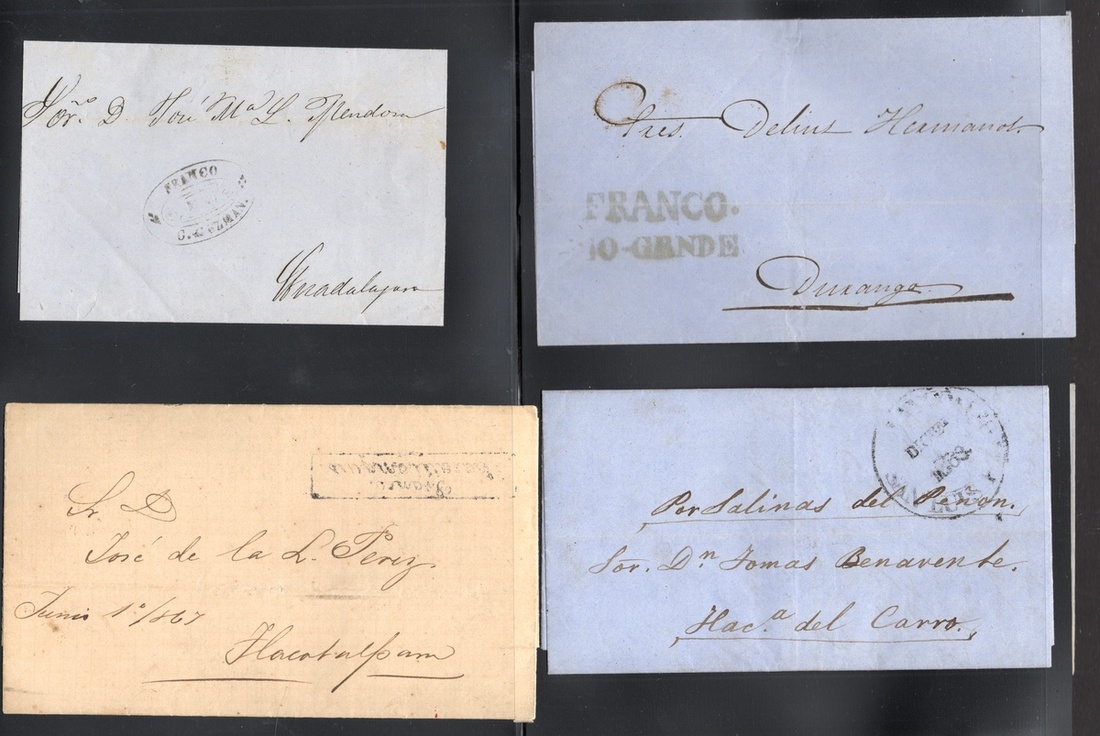 Sor. D. José Ma L. Mendoza
FRANCO
C. GUZMAN.
Guadalajara
Sres. Delius Hermanos.
FRANCO.
IO-GRNDE
Durango.
Franco
Sr D
José de la L. Perez.
Junio 1º/867
Tlacotalpam
DICIEM
1868
SAN LUIS
Por Salinas del Peñon.
Sor. Dn Tomas Benavente.
Hac.a del Carro.